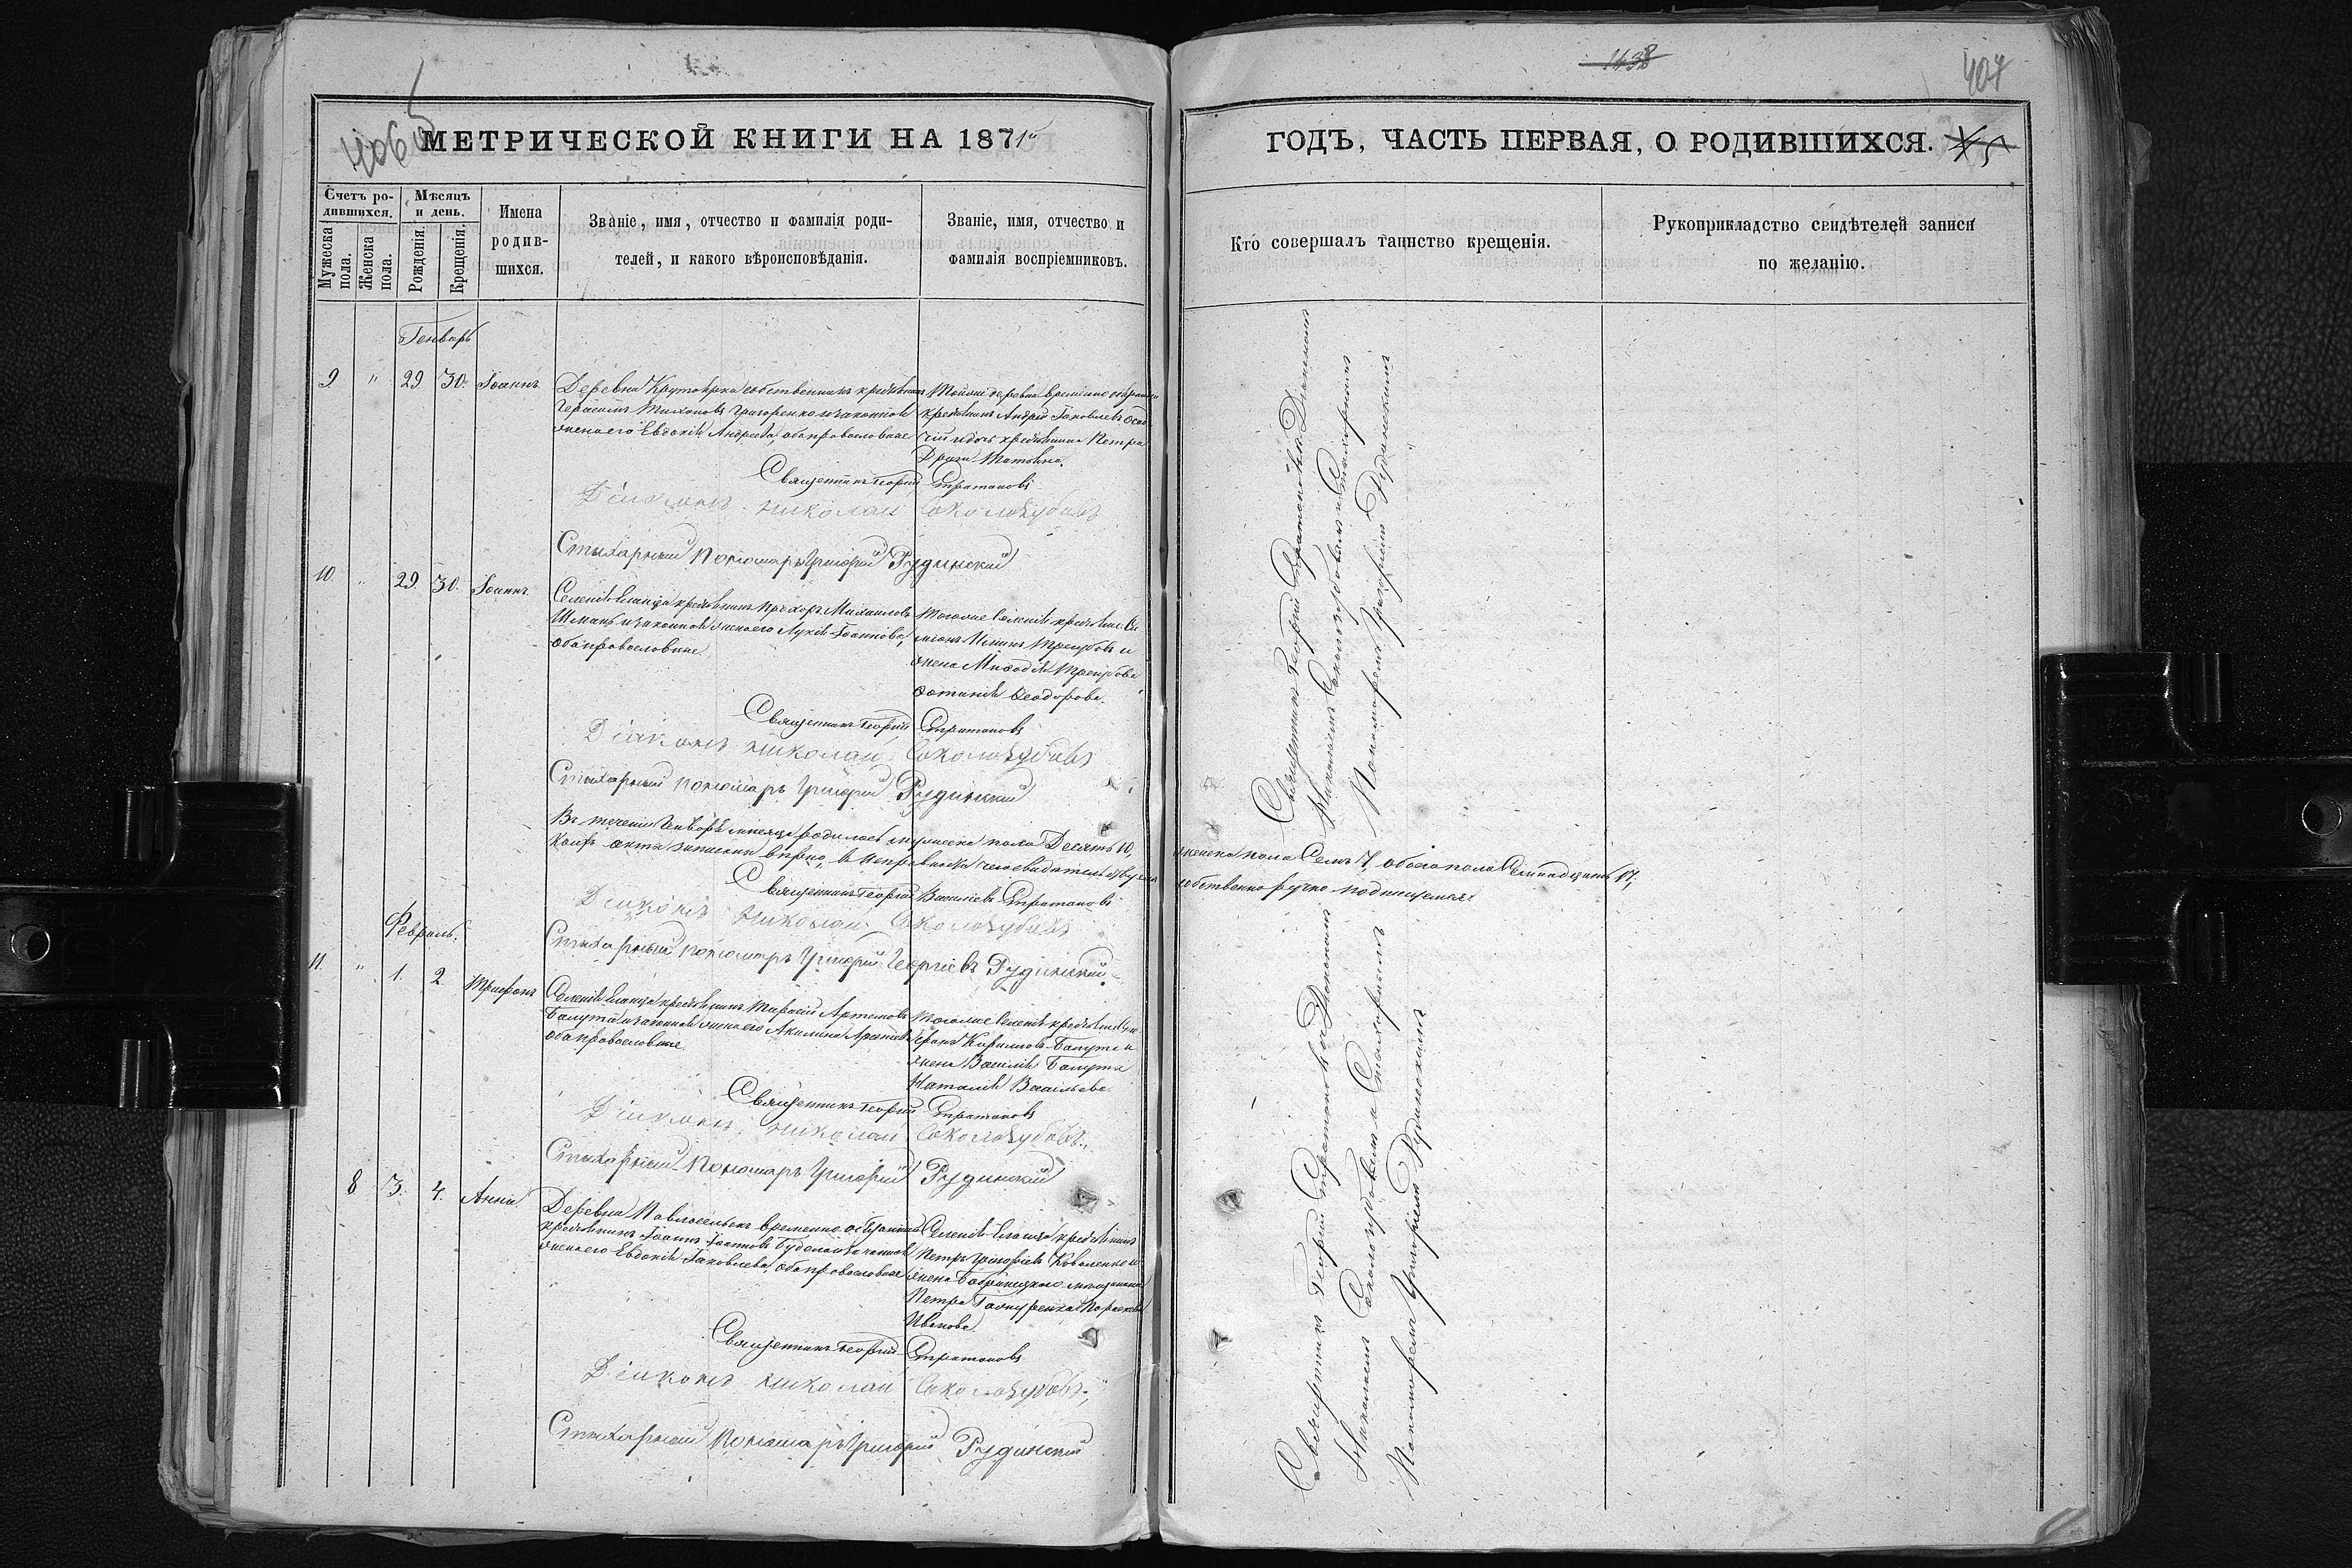 1438
407
406
МЕТРИЧЕСКОЙ КНИГИ НА 1871й
ГОДЪ, ЧАСТЬ ПЕРВАЯ, О РОДИВШИХСЯ.
Счетъ ро-
дившихся.
Мѣсяцъ
и день.
Мужеска
пола.
Женска
пола.
Рожденія.
Крещенія.
Имена
родив-
шихся.
Званіе, имя, отчество и фамилія роди-
телей, и какого вѣроисповѣданія.
Званіе, имя, отчество и
фамилія воспріемниковъ.
Кто совершалъ таинство крещенія.
Рукоприкладство свидѣтелей записи
по желанію.
Генварь
9 " 29 30. Іоаннъ
Деревни собственникъ крестьянинъ
Герасимъ Тихоновъ Григоренко и законная
жена его Евдокія Андреева, оба православные
Тойже деревни временно обязанный
крестьянинъ Андрей Іаковлевъ
и дочь крестьянина Петра
Матвѣева
Священникъ Георгій Стратоновъ
Діаконъ Николай Соколозубовъ
Стихарный Пономарь Григорій Рудинскій
10. " 29. 30. Іоаннъ
Селенія Еланца крестьянинъ Прохоръ Михаиловъ
и законная жена его Лукія Іоаннова,
оба православные.
Тогоже Селенія крестьяне
и
жена Трегубова
Ѳеодорова.
Священникъ Георгій Стратоновъ
Діаконъ Николай Соколозубовъ
Стихарный пономарь Григорій Рудинскій
Въ теченіи Генваря мѣсяца родилось мужеска пола Десять 10, женска пола Семь 7, обоего пола Семнадцать 17;
акта записаны вѣрно, въ собственноручно подпищемся:
Священникъ Георгій Василіевъ Стратоновъ
Діаконъ Николай Соколозубовъ
Стихарный пономарь Григорій Георгіевъ Рудинскій
Февраль.
11. " 1. 2 Трифонъ
Селенія Еланца крестьянинъ Тарасій Артемовъ
Балута и законная жена его Акилина
оба православные
Тогоже Селенія крестьянинъ
Кириловъ Балута и
жена Василія Балуты
Наталія Васильева
Священникъ Георгій Стратоновъ
Діаконъ Николай Соколозубовъ.
Стихарный Пономарь Григорій Рудинскій
8 3. 4. Анна
Деревни временно обязанный
крестьянинъ Іоаннъ Іоанновъ
жена его Евдокія Іаковлева, оба православные
Селенія Еланца крестьянинъ
Петръ Григорьевъ Коваленко и
жена Бобринецкаго мѣщанина
Петра Параскева
Иванова.
Священникъ Георгій Стратоновъ
Діаконъ Николай Соколозубовъ.
Стихарный Пономарь Григорій Рудинскій
Священникъ Георгій Стратоновъ съ Діакономъ
Николаемъ Соколозубовымъ и Стихарнымъ
Пономаремъ Григоріемъ Рудинскимъ
Священникъ Георгій Стратоновъ съ Діакономъ
Николаемъ Соколозубовымъ и Стихарнымъ
Пономаремъ Григоріемъ Рудинскимъ